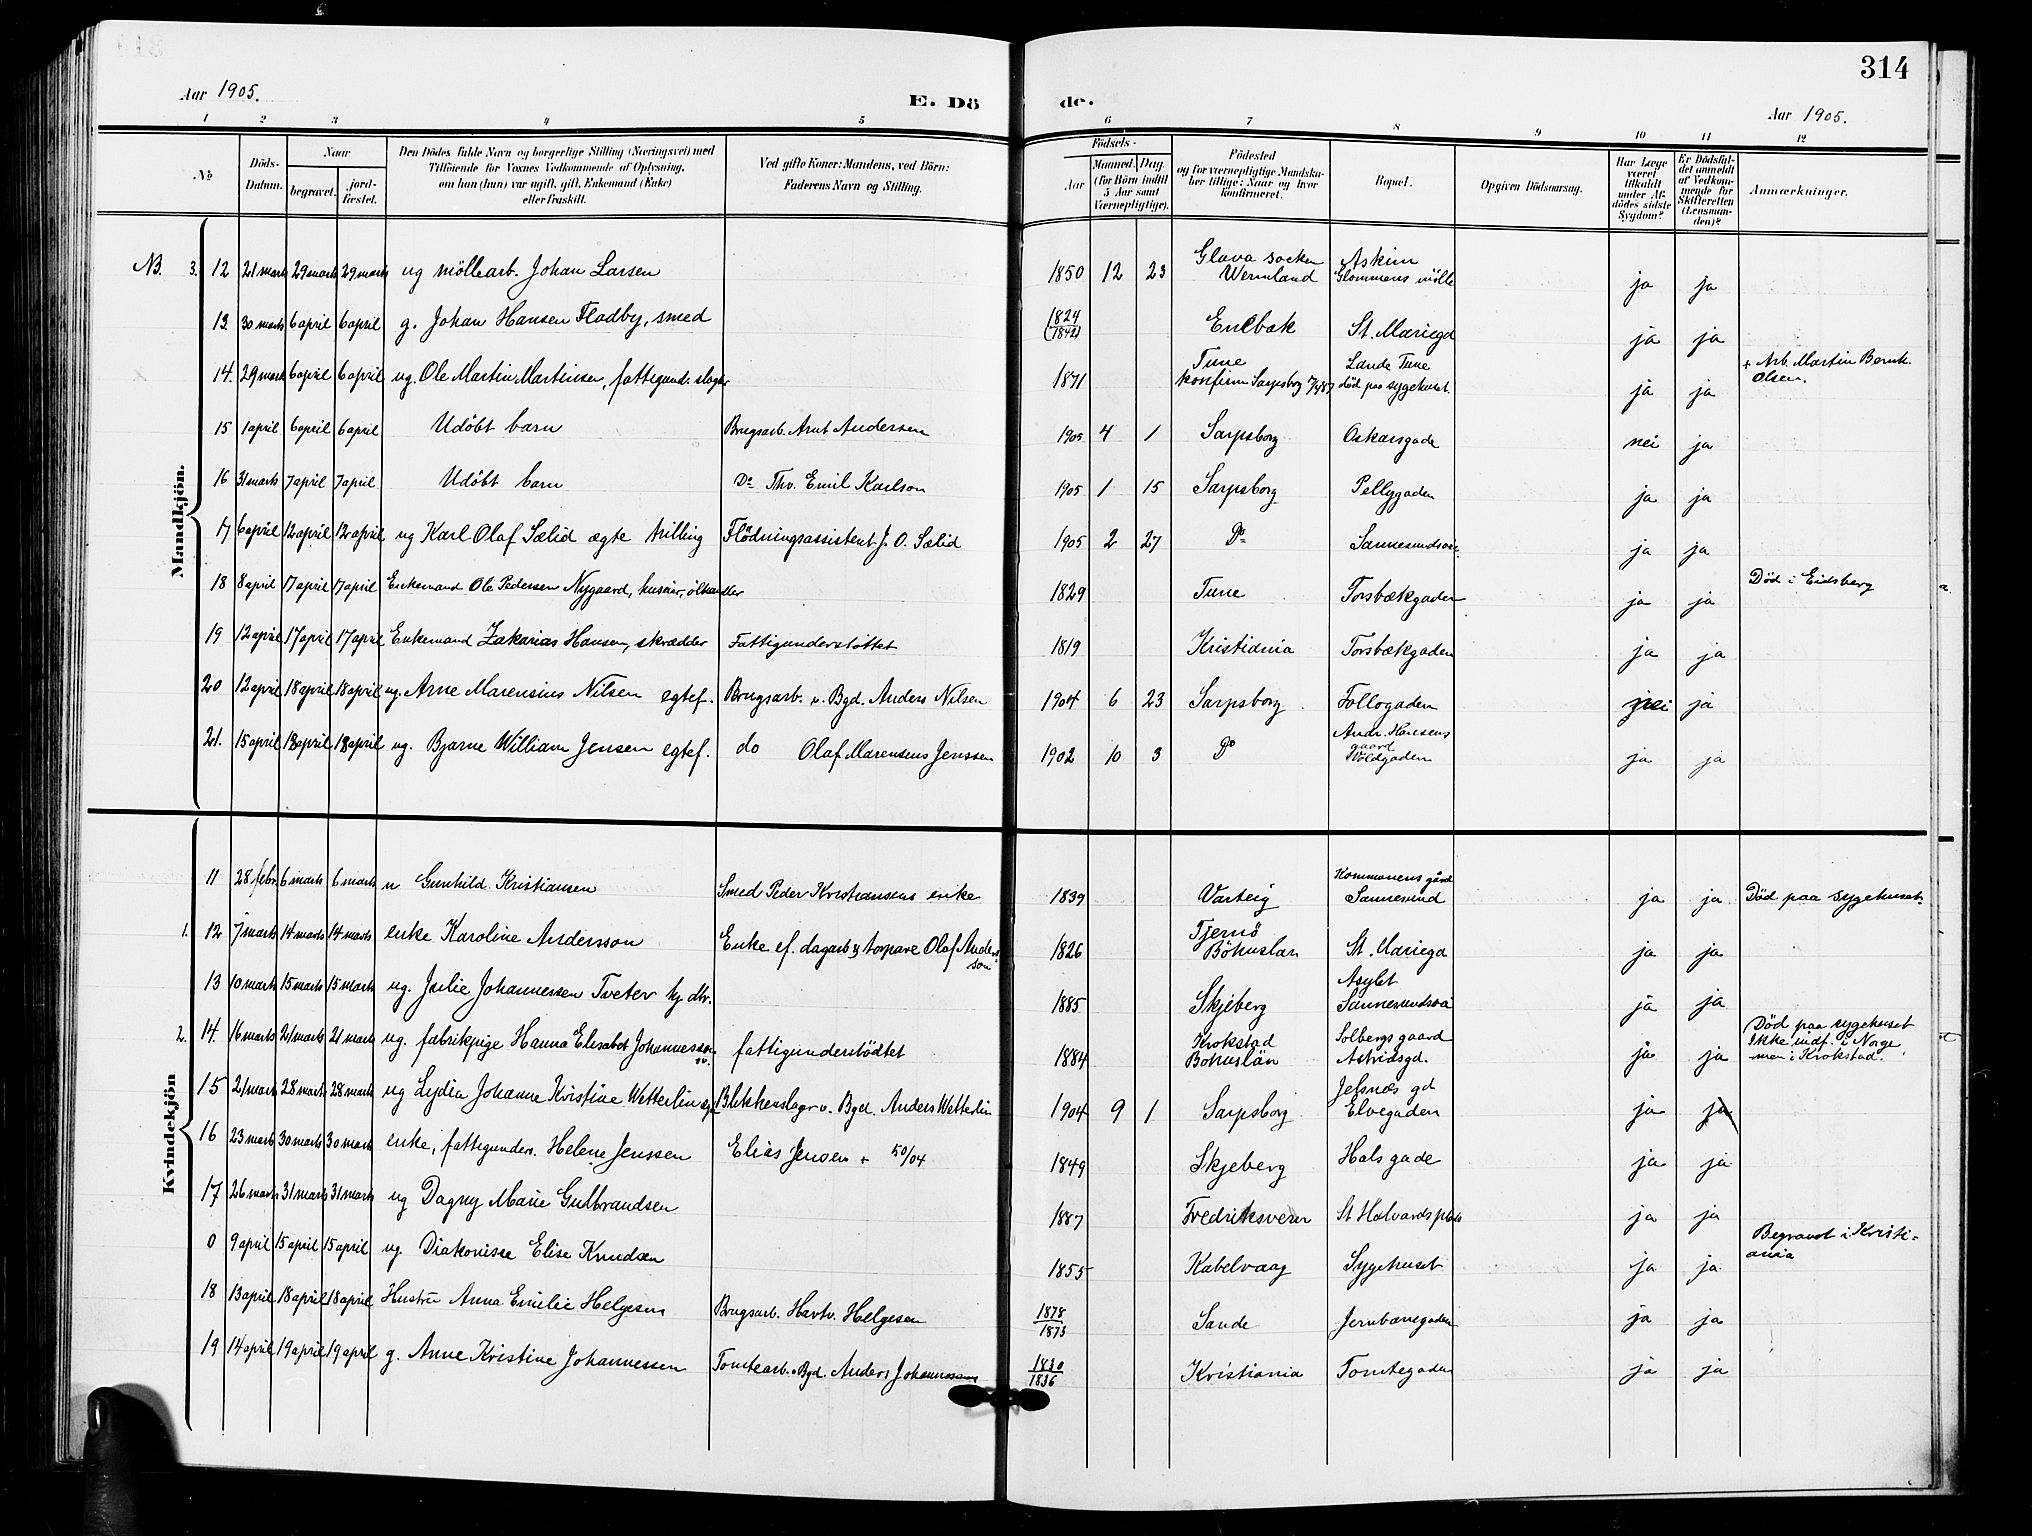 314
Aar 1905. E. Dö de. Aar 1905.
1 2 3 4 5 6 7 8 9 10 11 12
No Döds-Datum. Naar begravet. jord-fæstet. Den Dödes fulde Navn og borgerlige Stilling (Næringsvei) med Tilföiende for Voxnes Vedkommende af Oplysning, om han (hun) var ugift, gift, Enkemand (Enke) eller fraskilt. Ved gifte Koner: Mandens, ved Börn: Faderens Navn og Stilling. Födsels- Aar Maaned. Dag. (for Börn indtil 5 Aar samt Værnepligtige). Födested og for værnepligtige Mandskaber tillige: Naar og hvor konfirmeret. Bopæl. Opgiven Dödsaarsag. Har Læge været tilkaldt under Afdödes sidste Sygdom? Er Dödsfaldet anmeldt af Vedkommende for Skifteretten (Lensmanden)? Anmærkninger.
Mandkjön.
NB. 3. 12 21 marts 29 marts 29 marts ug möllearb. Johan Larsen 1850 12 23 Glava socken Wermland Askim Glommens mölle ja ja
13. 30 marts 6 april 6 april g. Johan Hansen Fladby, smed 1824 (1842) Enebak St. Mariegd ja ja
14. 29 mart 6 april 6 april ug. Ole Martin Martinsen, fattigund. slager 1871 Tune konfirm Sarpsborg Lande Tune död paa sygehuset. ja ja + Arb. Martin Bernt. Olsen.
15 1 april 6 april 6 april Udöbt barn Brugsarb. Arnt Andersen 1905 4 1 Sarpsborg Oskarsgade nei ja
16 31 marts 7 april 7 april Udöbt barn Do Thv. Emil Karlson 1905 1 15 Sarpsborg Pellygaden ja ja
17 6 april 12 april 12 april ug Karl Olaf Sælid ægte trilling Flödningsassistent J. O. Sælid 1905 2 27 Do Sannesundsvei ja ja
18 8 april 17 april 17 april Enkemand Ole Pedersen Nygaard, huseier, ölhandler 1829 Tune Torsbækgaden ja ja Död i Eidsberg
19 12 april 17 april 17 april Enkemand Zakarias Hansen, skrædder Fattigunderstöttet 1819 Kristiania Torsbækgaden ja ja
20 12 april 18 april 18 april ug. Arne Marensius Nilsen egtef. Brugsarb. v. Bgd. Anders Nilsen 1904 6 23 Sarpsborg Follogaden nei ja
21. 15 april 18 april 18 april ug. Bjarne William Jensen egtef. do Olaf Marensius Jenssen 1902 10 3 Do Andr. Hansens gaard Voldgaden ja ja
Kvindekjön
11 28 febr. 6 marts 6 marts Gunhild Kristiansen Smed Peder Kristiansens enke 1839 Varteig Kommunens gård Sannesund ja ja Död paa sygehuset.
1. 12 7 marts 14 marts 14 marts enke Karoline Andersson Enke ef. dagarb & torpare Olaf Andersson 1826 Tjernö Böhuslan St. Mariegd ja ja
13 10 marts 15 marts 15 marts ug. Julie Johannessen Tveter hj. dtr. 1885 Skjeberg Asylet Sannesundsvei ja ja
2. 14. 16 marts 21 marts 21 marts ug. fabrikpige Hanna Elisabet Johannesson sv. fattigunderstödtet 1884 Krokstad Bohuslän Solbergs gaard Astridsgd. ja ja Död paa sygehuset Ikke indf. i Norge men i Krokstad.
15 21 marts 28 marts 28 marts ug Lydia Johanne Kristine Wetterlin Blikkenslager v. Bgd. Anders Wetterlin 1904 9 1 Sarpsborg Jelsnæs gd Elvegaden ja ja
16 23 marts 30 marts 30 marts enke, fattigunders. Helene Jenssen Elias Jensen + 50/04 1849 Skjeberg Halsgade ja ja
17 26 marts 31 marts 31 marts ug Dagny Marie Gulbrandsen 1887 Fredriksværn St Halvards plads ja ja
0 9 april 15 april 15 april ug. Diakonisse Elise Knudsen 1855 Kabelvaag Sygehuset ja ja Begravet i Kristiania
18 13 april 18 april 18 april Hustru Anna Emilie Helgesen Brugsarb. Hartv. Helgesen 1878 1873 Sande Jernbanegaden ja ja
19 14 april 19 april 19 april g. Anne Kristine Johannessen Tomtearb. v. Bgd. Anders Johannessen 1830 1836 Kristiania Tomtegaden ja ja